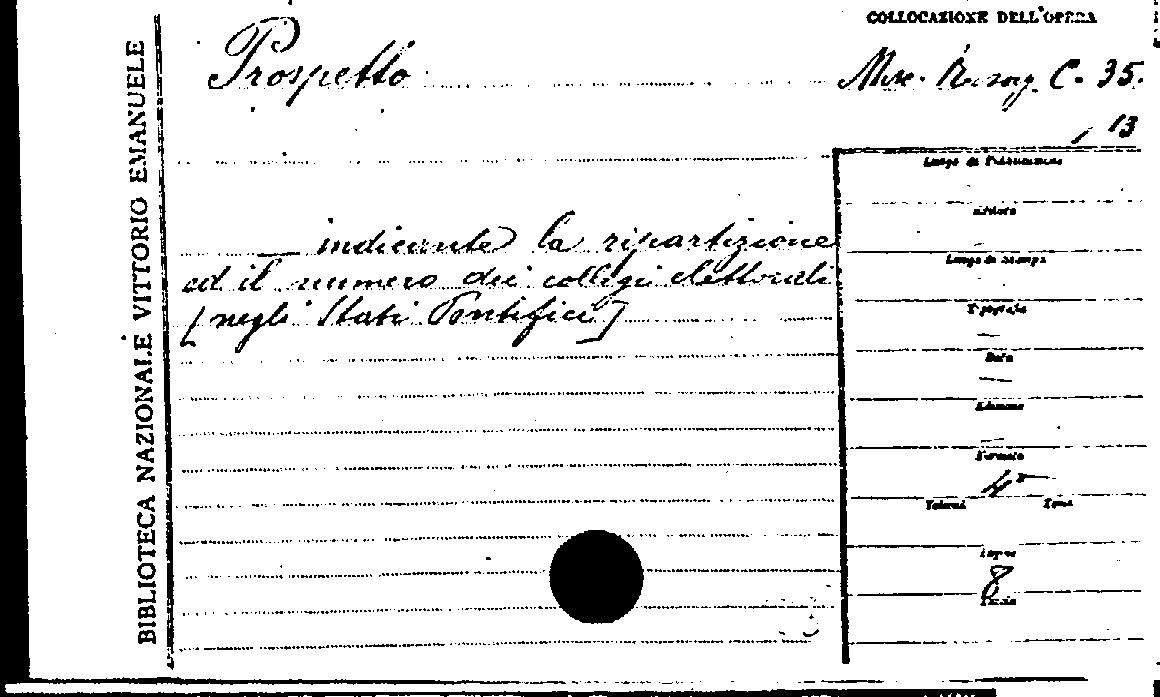 BIBLIOTECA NAZIONALE VITTORIO EMANUELE
COLLOCAZIONE DELL'OPERA
Prospetto
Misc. Risorg. C. 35.
, 13
indicante la ripartizione
ed il numero dei collegi elettorali
[negli Stati Pontifici]
Luogo di Pubblicazione
Editore
Luogo di stampa
Tipografia
—
Data
—
Edizione
—
Formato
4°
Volumi Tomi
Pagine
8